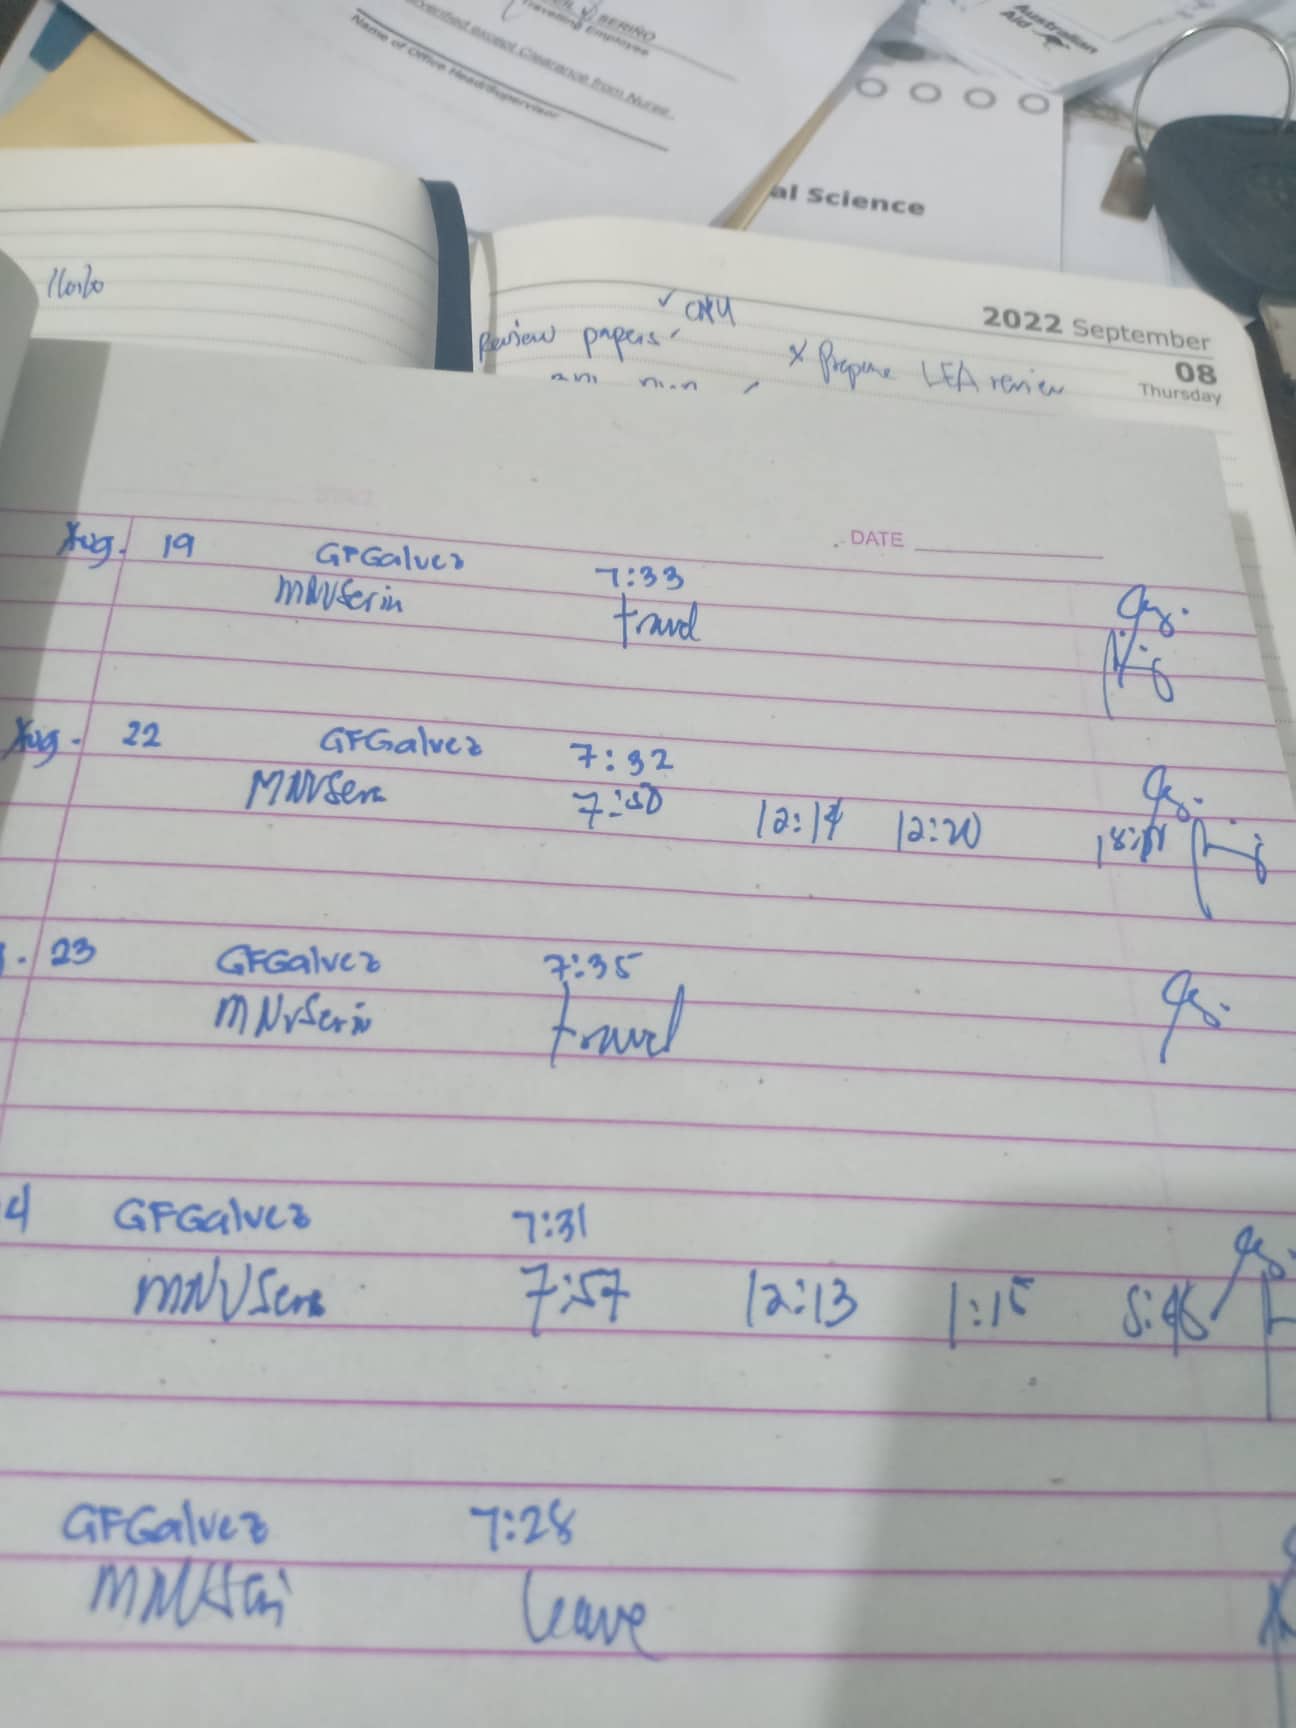 SERIÑO
Travelling Employee
except Clearance from Nurse.
Name of Office Head/Supervisor
Australian
Aid
al Science
Iloilo
✓ CMU
Review papers
x Prepare LEA review
2022 September
08
Thursday
DATE
Aug. 19 GFGalvez 7:33
MNVSerin travel
Aug. 22 GFGalvez 7:32
MNVSern 7:50 12:14 12:20
. 23 GFGalvez 7:35
MNVSerin travel
4 GFGalvez 7:31
MNVSern 7:57 12:13 1:15
GFGalvez 7:28
leave